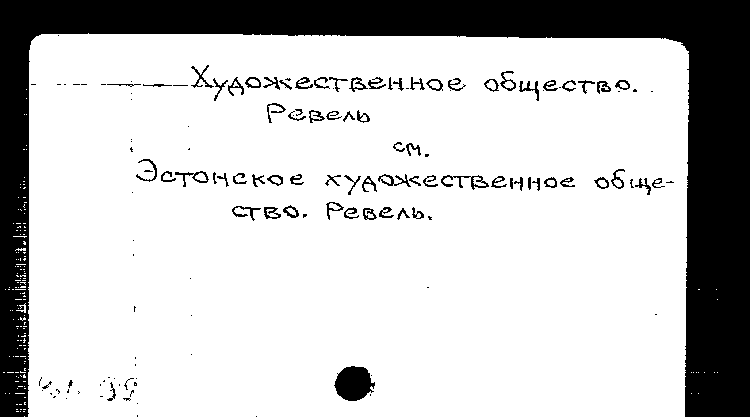 Художественное общество.
Ревель
см.
Эстонское художественное обще-
ство. Ревель.